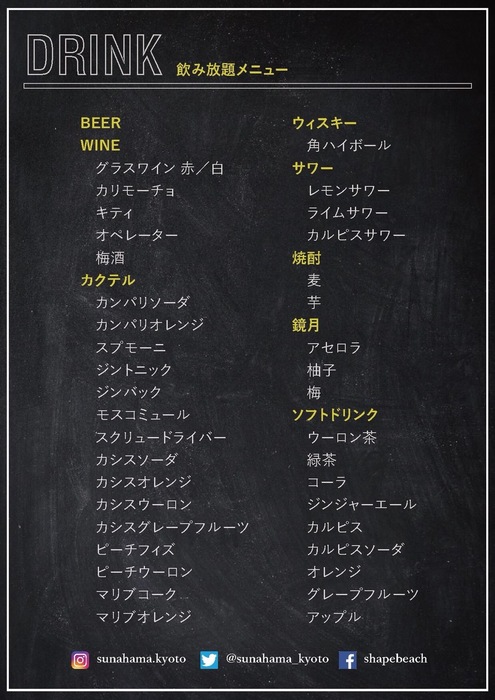 DRINK 飲み放題メニュー
BEER
WINE
グラスワイン 赤／白
カリモーチョ
キティ
オペレーター
梅酒
カクテル
カンパリソーダ
カンパリオレンジ
スプモーニ
ジントニック
ジンバック
モスコミュール
スクリュードライバー
カシスソーダ
カシスオレンジ
カシスウーロン
カシスグレープフルーツ
ピーチフィズ
ピーチウーロン
マリブコーク
マリブオレンジ
ウィスキー
角ハイボール
サワー
レモンサワー
ライムサワー
カルピスサワー
焼酎
麦
芋
鏡月
アセロラ
柚子
梅
ソフトドリンク
ウーロン茶
緑茶
コーラ
ジンジャーエール
カルピス
カルピスソーダ
オレンジ
グレープフルーツ
アップル
sunahama.kyoto @sunahama_kyoto shapebeach